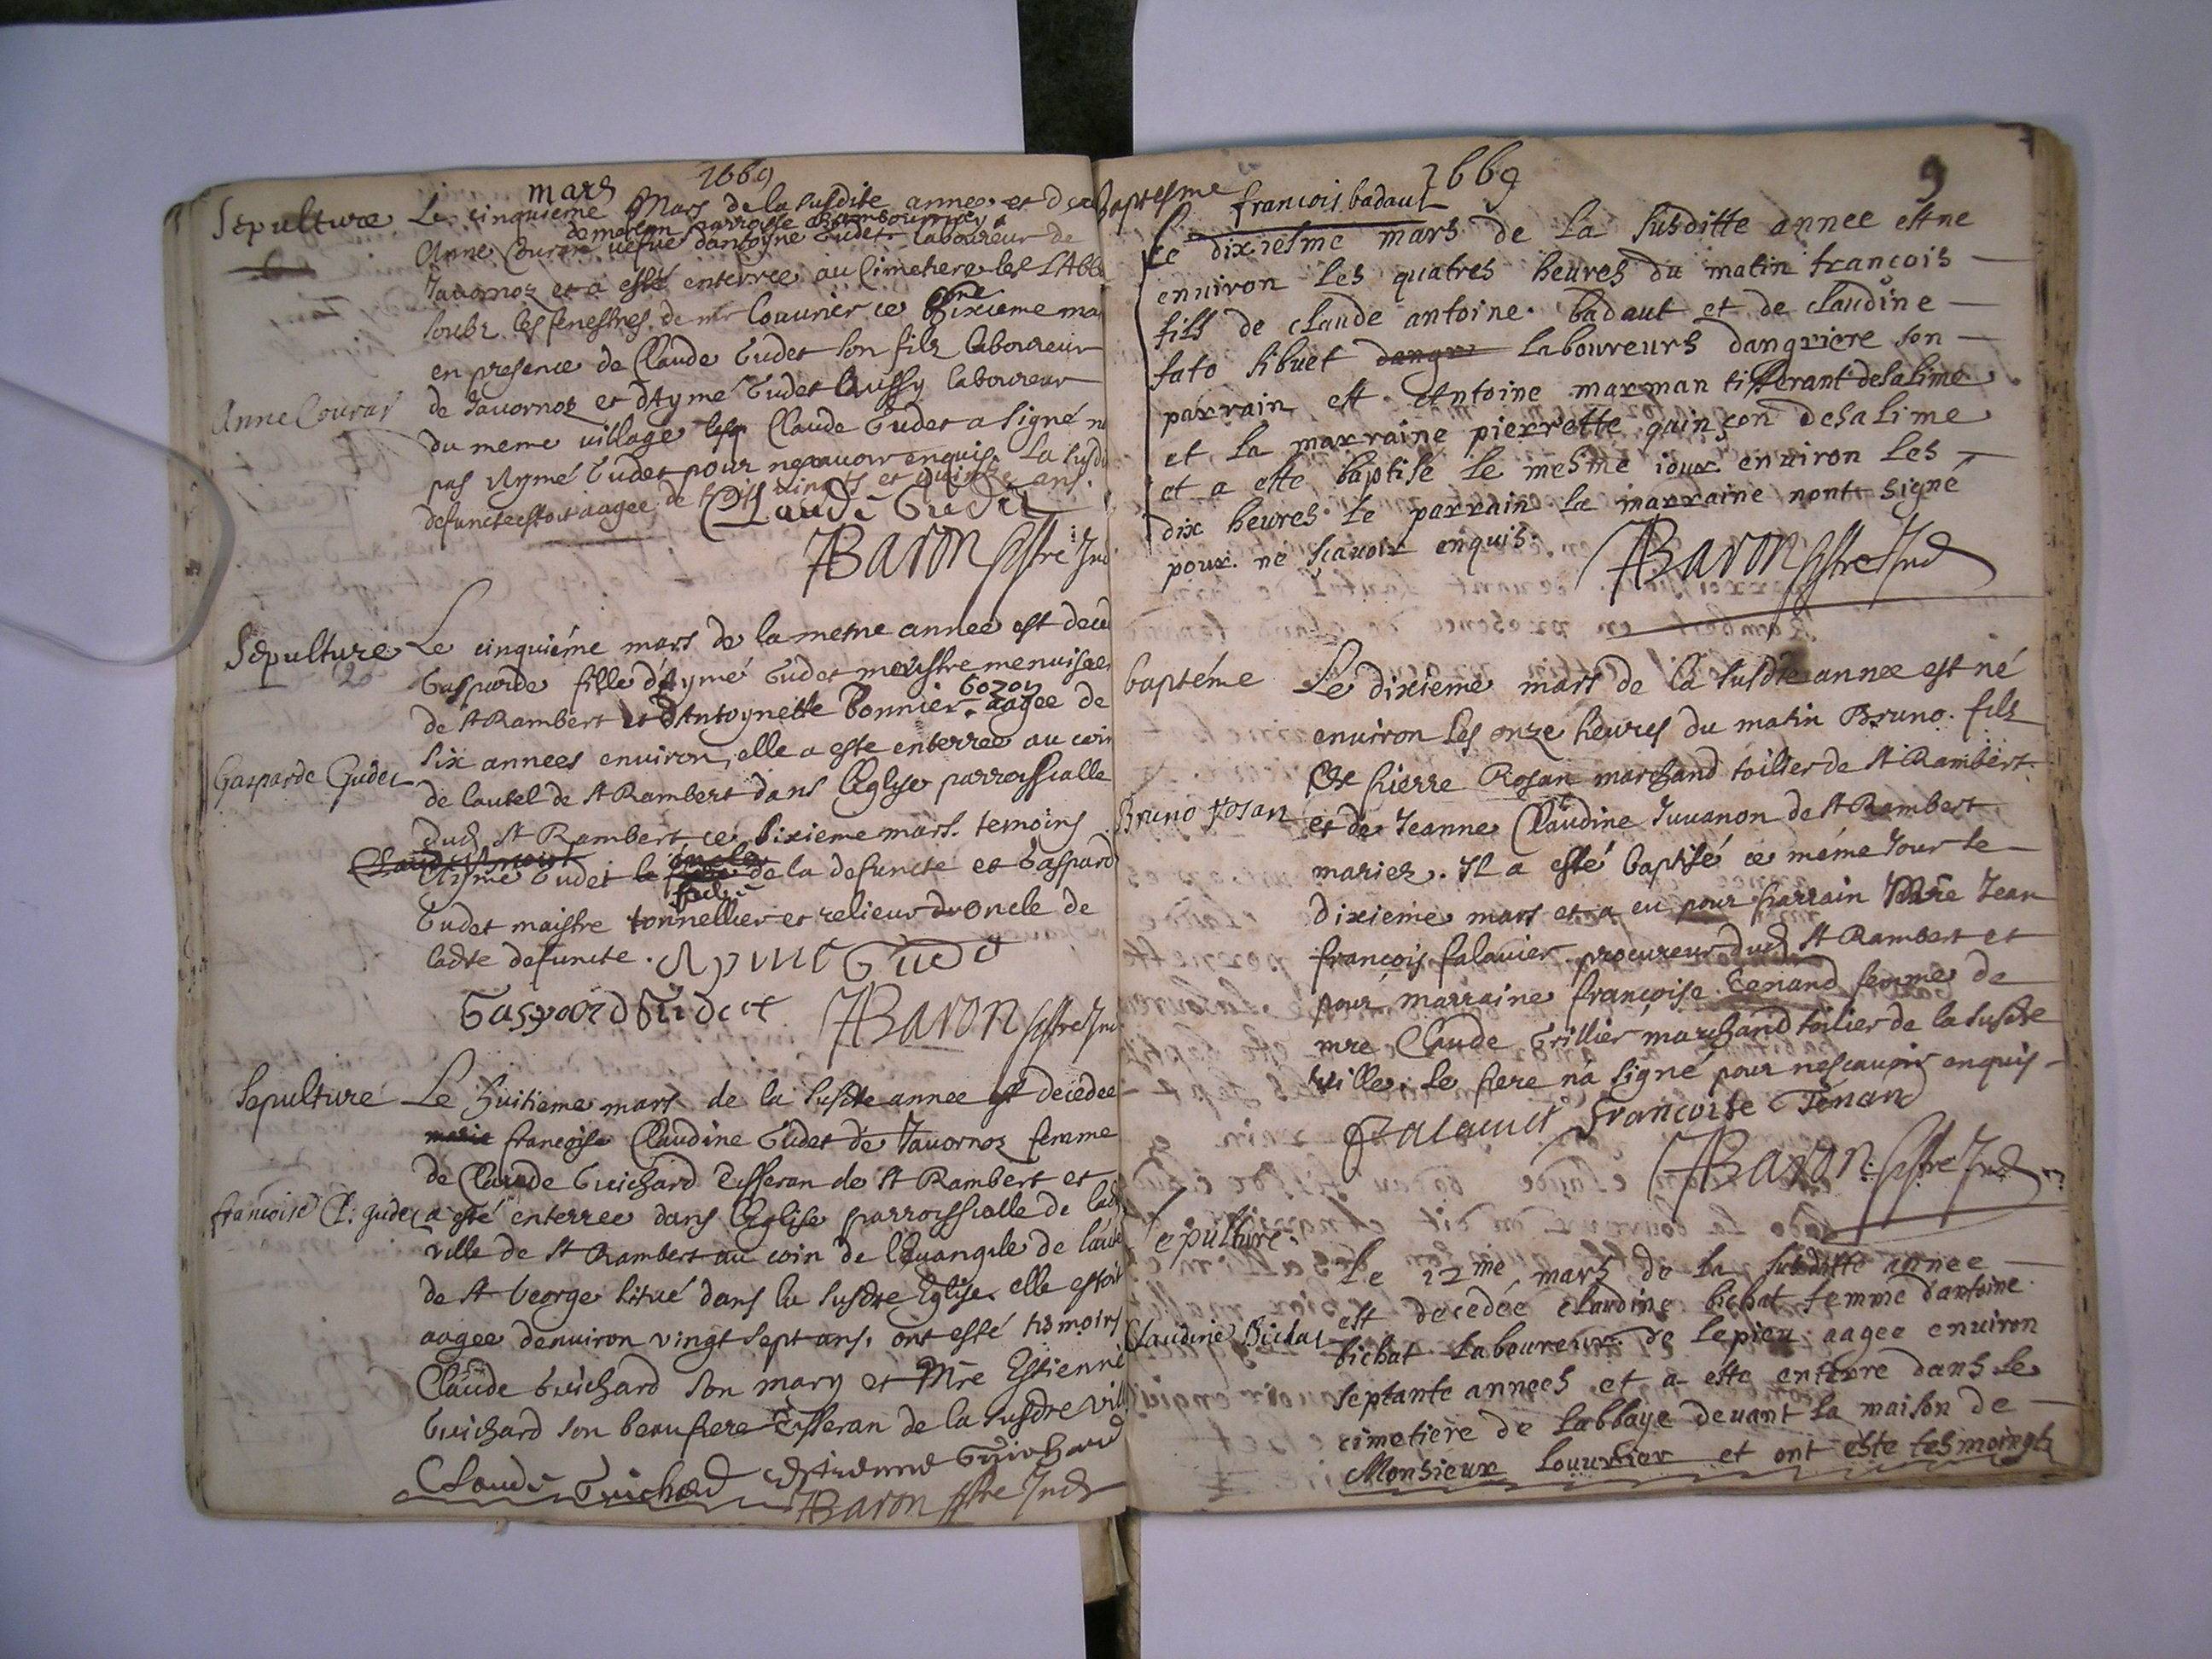 1669
mars
Sepulture
Le cinquieme Mars de la susdite annee est dece
Anne Couras vefve dantoyne Gudet laboureur de
Javornoz et a esté enterree au Cimetiere de L'Abb
soubz les fenestres de mr Couurier ce sixieme ma
en presence de Claude Gudet son filz laboureur
Anne Couras
de Javornoz et d'Aymé Gudet aussy laboureur
du meme village Claude Gudet a signé n
pas Aymé Gudet pour ne scavoir enquis. La susd
defuncte estoit aagee de trois vingts et quinze ans.
Claude Gudet
ABaron pstre Ind
Sepulture
Le cinquiéme mars de la meme annee est deced
Gasparde fille d'Aymé Gudet maistre menuisier
de St Rambert et d'Antoynette Bonnier Gozon aagee de
six annees environ, elle a este enterree au coin
Gasparde Gudet
de lautel de St Rambert dans l'Eglise parroissialle
dud St Rambert ce sixieme mars. temoins
Aymé Gudet le de la defuncte et Gaspard
Gudet maistre tonnellier et relieur oncle de
ladte defuncte. Aymé Gudet
Gaspard Gudet ABaron pstre Ind
Sepulture
Le huitieme mars de la susdte annee est decedee
francoise Claudine Gudet de Javornoz femme
de Claude Guichard Tisseran de St Rambert et
francoise Cl: gudet
a esté enterree dans l'Eglise parroissialle de lad
ville de St Rambert au coin de l'Evangile de l'autel
de St George situé dans la susdte Eglise. elle estoit
aagee denviron vingt sept ans. ont esté temoins
Claude Guichard son mary et Mre Estienne
Guichard son beaufrere Tisseran de la susdte vill
Claude Guichard Estienne Guichard
ABaron pstre Ind
1669
9
Baptesme
francois badaut
Le dixiesme mars de la susditte annee est ne
environ les quatres heures du matin francois
fils de claude antoine badaut et de claudine
fato sibuet dangri laboureurs dangriere son
parrain est Antoine marman tisserant de salime
et la marraine pierrette guinson de salime
et a este baptise le mesme iour environ les
dix heures le parrain la marraine nont signé
pour ne scavoir enquis.
ABaron pstre Ind
baptéme
Le dixieme mars de la susdte annee est né
environ les onze heures du matin Bruno filz
de pierre Rosan marchand toilier de St Rambert
Bruno Rosan
et de Jeanne Claudine Juvanon de St Rambert
mariez. Il a esté baptisé ce méme Jour le
dixieme mars et a eu pour parrain Mre Jean
françois falavier procureur dud St Rambert et
pour marraine françoise Tenand femme de
mre Claude Grillier marchand toilier de la susdte
ville. Le pere n'a signé pour ne scavoir enquis
Falavier Francoise Tenand
ABaron pstre Ind
Sepulture
Le 12me mars de la susditte annee
est decedée claudine bichat femme dantoine
Claudine Bichat
bichat laboureur de lepieu aagee environ
septante annees et a este enterre dans le
cimetiere de labbaye devant la maison de
Monsieur Couurier et ont este tesmoingts